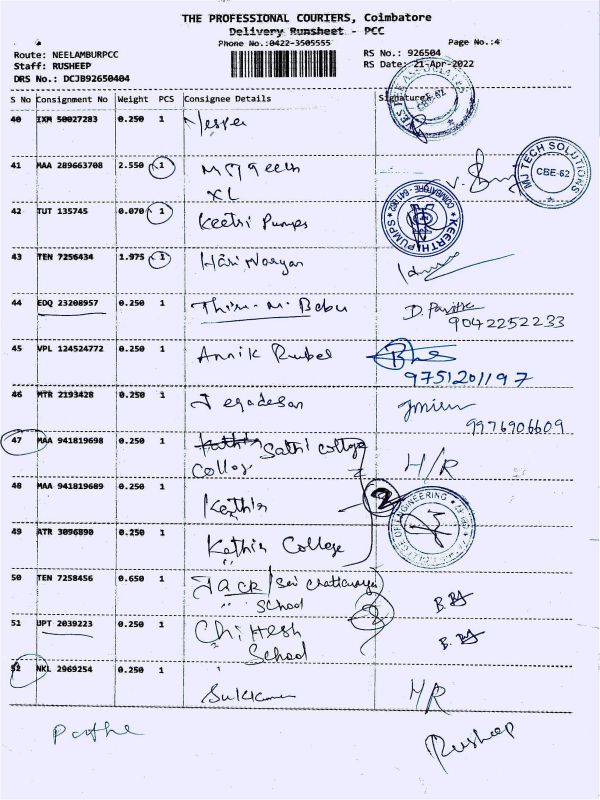 THE PROFESSIONAL COURIERS, Coimbatore
Delivery Runsheet - PCC
Phone No.:0422-3505555
Page No.:4
Route: NEELAMBURPCC
RS No.: 926504
Staff: RUSHEEP
RS Date: 21-Apr-2022
DRS No.: DCJB92650404
S No Consignment No Weight PCS Consignee Details Signature
40 IXM 50027283 0.250 1
CBE-62
41 MAA 289663708 2.550 1
XL
MJ TECH SOLUTIONS CBE-62
42 TUT 135745 0.070 1 Keethi Pumps
KEERTHI PUMPS COIMBATORE - 641 062
43 TEN 7256434 1.975 1 Hari Narayan
44 EDQ 23208957 0.250 1 Thiru. M. Babu
9042252233
45 VPL 124524772 0.250 1 Annik Rubel
9751201197
46 MTR 2193428 0.250 1 Jegadesan
9976906609
47 MAA 941819698 0.250 1 Sathi college H/R
Colloge
48 MAA 941819689 0.250 1 Kathir
2
49 ATR 3096890 0.250 1 Kathir College
COLLEGE OF ENGINEERING
50 TEN 7258456 0.650 1 Jack / Sri
School
51 UPT 2039223 0.250 1
School
52 NKL 2969254 0.250 1 H/R
Rusheep